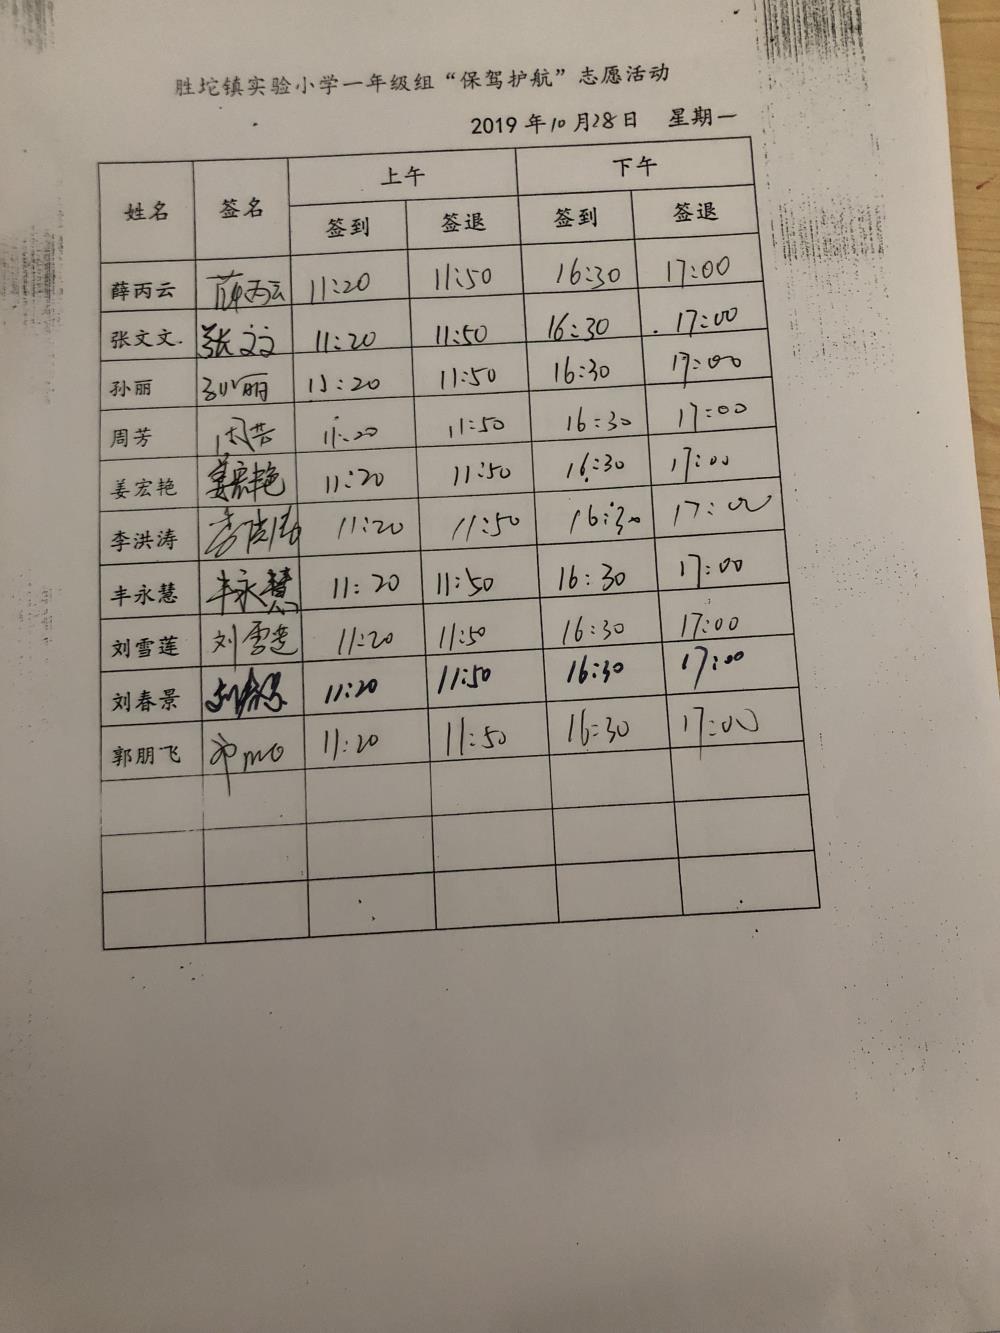 胜坨镇实验小学一年级组“保驾护航”志愿活动
2019 年 10 月 28 日 星期一
姓名 签名 上午 下午
签到 签退 签到 签退
薛丙云 薛丙云 11:20 11:50 16:30 17:00
张文文. 张文文 11:20 11:50 16:30 17:00
孙丽 孙丽 11:20 11:50 16:30 17:00
周芳 周芳 11:20 11:50 16:30 17:00
姜宏艳 姜宏艳 11:20 11:50 16:30 17:00
李洪涛 李洪涛 11:20 11:50 16:30 17:00
丰永慧 丰永慧 11:20 11:50 16:30 17:00
刘雪莲 刘雪莲 11:20 11:50 16:30 17:00
刘春景 刘春景 11:20 11:50 16:30 17:00
郭朋飞 11:20 11:50 16:30 17:00